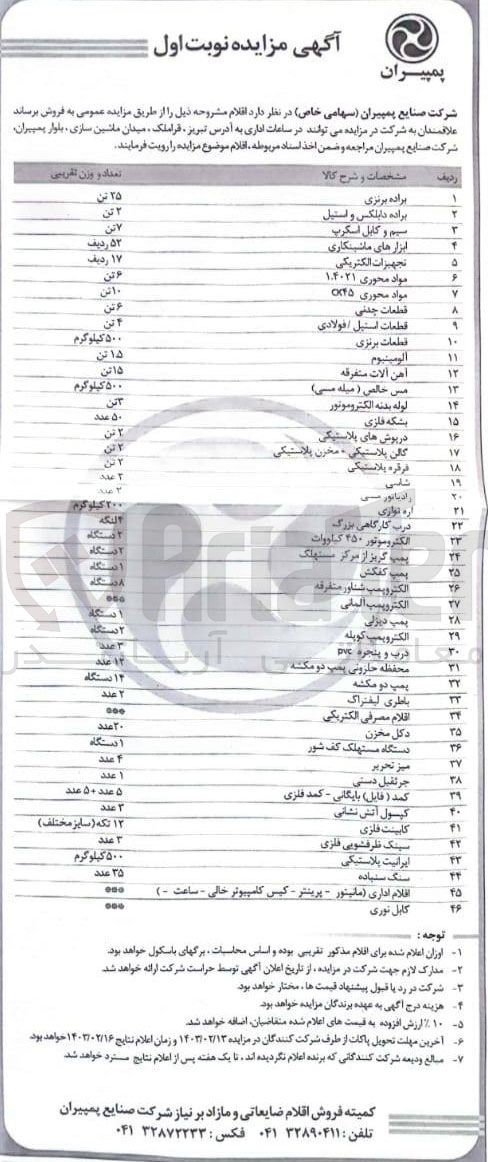 آگهی مزایده نوبت اول
پمپیران
شرکت صنایع پمپیران (سهامی خاص) در نظر دارد اقلام مشروحه ذیل را از طریق مزایده عمومی به فروش برساند
علاقمندان به شرکت در مزایده می توانند در ساعات اداری به آدرس تبریز ، قراملک ، میدان ماشین سازی ، بلوار پمپیران،
شرکت صنایع پمپیران مراجعه و ضمن اخذ اسناد مربوطه ، اقلام موضوع مزایده را رویت فرمایند.
ردیف مشخصات و شرح کالا تعداد و وزن تقریبی
۱ براده برنزی ۲۵ تن
۲ براده داپلکس و استیل ۲ تن
۳ سیم و کابل اسکرپ ۷ تن
۴ ابزار های ماشینکاری ۵۲ ردیف
۵ تجهیزات الکتریکی ۱۷ ردیف
۶ مواد محوری ۱.۴۰۲۱ ۶ تن
۷ مواد محوری CK۴۵ ۱۰ تن
۸ قطعات چدنی ۶ تن
۹ قطعات استیل / فولادی ۴ تن
۱۰ قطعات برنزی ۵۰۰ کیلوگرم
۱۱ آلومینیوم ۱.۵ تن
۱۲ آهن آلات متفرقه ۱۵ تن
۱۳ مس خالص ( میله مسی) ۵۰۰ کیلوگرم
۱۴ لوله بدنه الکتروموتور ۳ تن
۱۵ بشکه فلزی ۵۰ عدد
۱۶ درپوش های پلاستیکی ۲ تن
۱۷ گالن پلاستیکی + مخزن پلاستیکی ۲ تن
۱۸ قرقره پلاستیکی ۲ تن
۱۹ شاسی ۲ عدد
۲۰ رادیاتور مسی ۲ عدد
۲۱ اره نواری ۲۰۰ کیلوگرم
۲۲ درب کارگاهی بزرگ ۴ لنگه
۲۳ الکتروموتور ۴۵۰ کیلووات ۲ دستگاه
۲۴ پمپ گریز از مرکز مستهلک ۲ دستگاه
۲۵ پمپ کفکش ۱ دستگاه
۲۶ الکتروپمپ شناور متفرقه ۸ دستگاه
۲۷ الکتروپمپ آلمانی ***
۲۸ پمپ دیزلی ۱ دستگاه
۲۹ الکتروپمپ کوپله ۲ دستگاه
۳۰ درب و پنجره pvc ۳ عدد
۳۱ محفظه حلزونی پمپ دو مکشه ۱۲ عدد
۳۲ پمپ دو مکشه ۱۴ دستگاه
۳۳ باطری لیفتراک ۲ عدد
۳۴ اقلام مصرفی الکتریکی ***
۳۵ دکل مخزن ۲۰ عدد
۳۶ دستگاه مستهلک کف شور ۱ دستگاه
۳۷ میز تحریر ۴ عدد
۳۸ جرثقیل دستی ۱ عدد
۳۹ کمد ( فایل) بایگانی - کمد فلزی ۵ عدد + ۵ عدد
۴۰ کپسول آتش نشانی ۳ عدد
۴۱ کابینت فلزی ۱۲ تکه (سایز مختلف)
۴۲ سینک ظرفشویی فلزی ۳ عدد
۴۳ ایرانیت پلاستیکی ۵۰۰ کیلوگرم
۴۴ سنگ سنباده ۳۵ عدد
۴۵ اقلام اداری (مانیتور - پرینتر - کیس کامپیوتر خالی - ساعت - ) ***
۴۶ کابل نوری ***
توجه :
۱- اوزان اعلام شده برای اقلام مذکور تقریبی بوده و اساس محاسبات ، برگهای باسکول خواهد بود.
۲- مدارک لازم جهت شرکت در مزایده ، از تاریخ اعلان آگهی توسط حراست شرکت ارائه خواهد شد.
۳- شرکت در رد یا قبول پیشنهاد قیمت ها ، مختار خواهد بود.
۴- هزینه درج آگهی به عهده برندگان مزایده خواهد بود.
۵- ۱۰ ٪ ارزش افزوده به قیمت های اعلام شده متقاضیان، اضافه خواهد شد.
۶- آخرین مهلت تحویل پاکات از طرف شرکت کنندگان در مزایده ۱۴۰۳/۰۲/۱۳ و زمان اعلام نتایج ۱۴۰۳/۰۲/۱۶ خواهد بود.
۷- مبالغ ودیعه شرکت کنندگانی که برنده اعلام نگردیده اند ، تا یک هفته پس از اعلام نتایج مسترد خواهد شد.
کمیته فروش اقلام ضایعاتی و مازاد بر نیاز شرکت صنایع پمپیران
تلفن : ۳۲۸۹۰۴۱۱ ۰۴۱ فکس : ۳۲۸۷۲۲۳۳ ۰۴۱